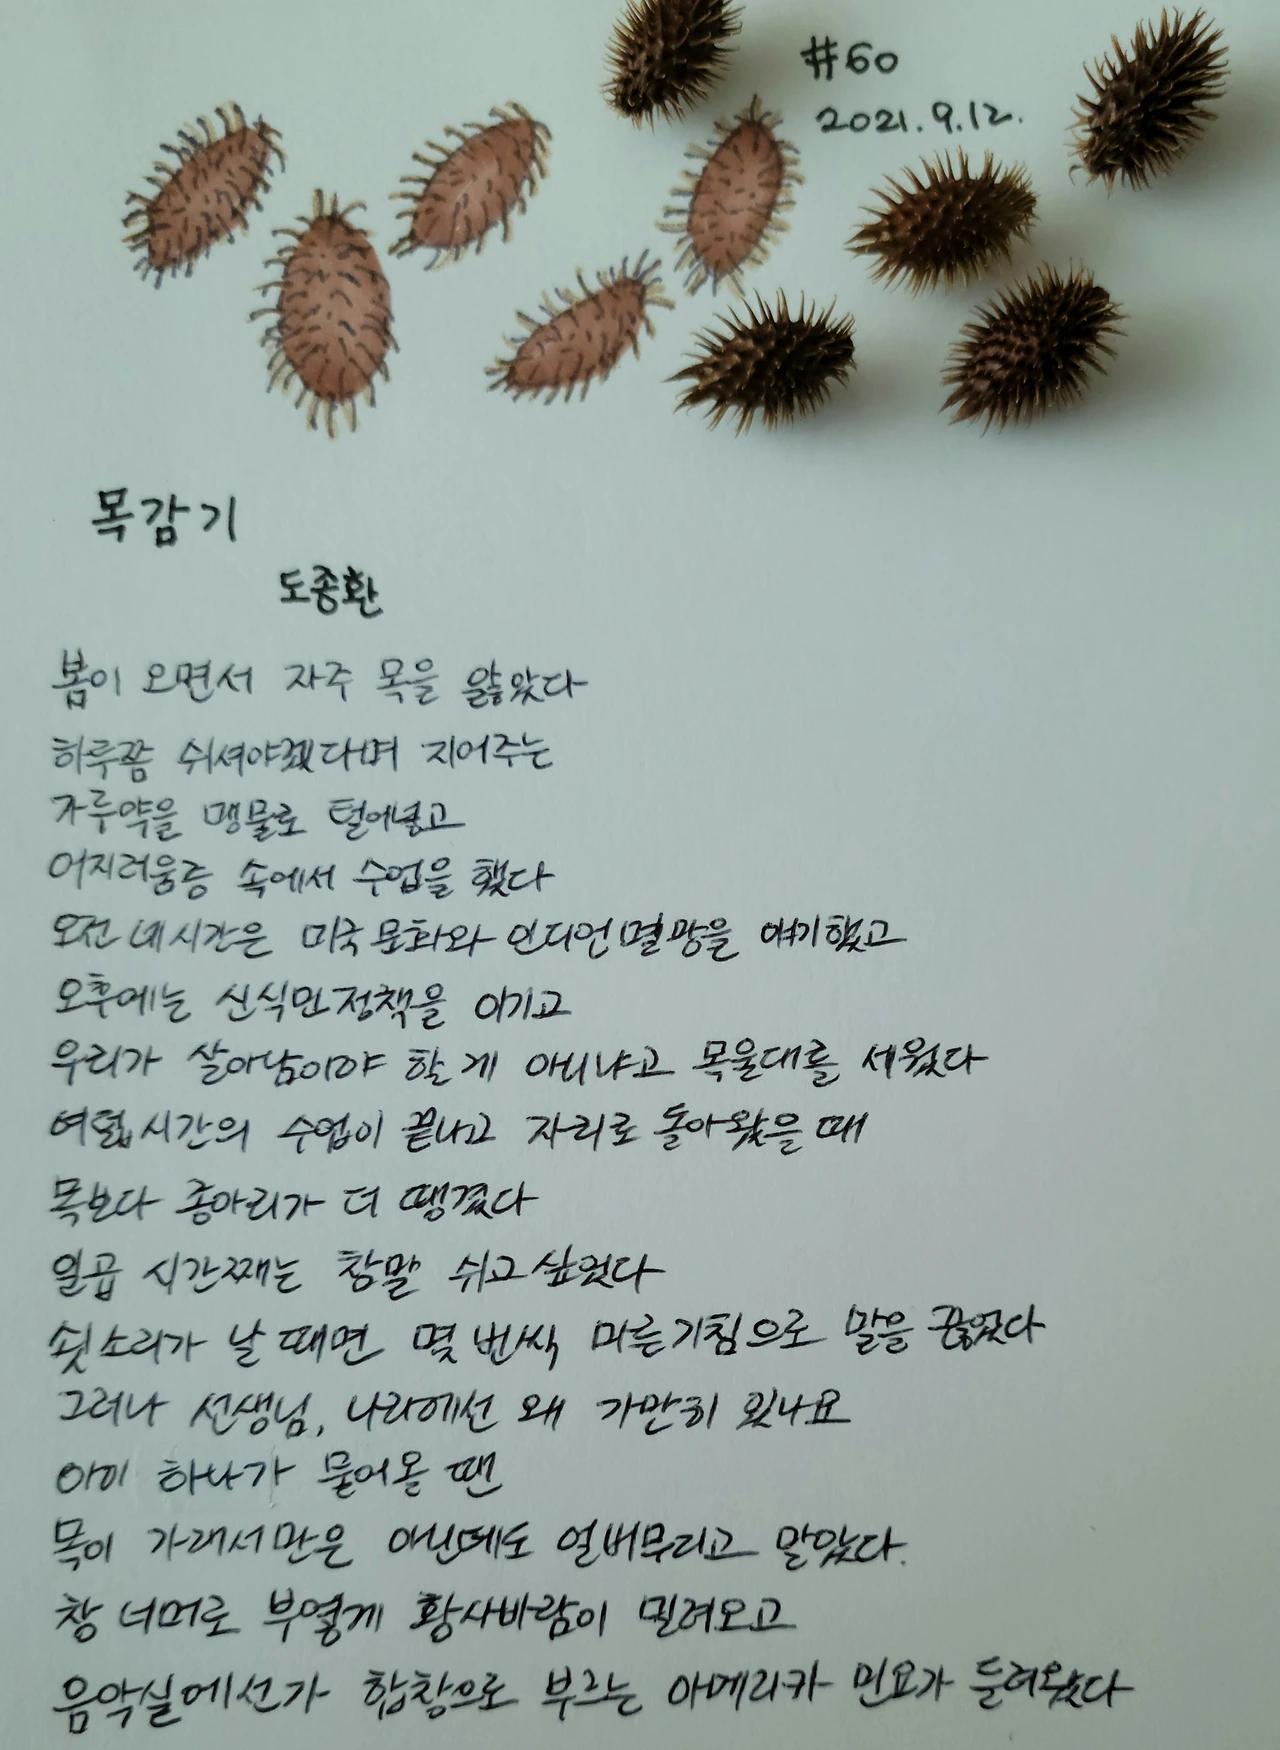 #60
2021.9.12.
목감기
도종환
봄이 오면서 자주 목을 앓았다
하루쯤 쉬셔야겠다며 지어주는
가루약을 맹물로 털어넣고
어지러움증 속에서 수업을 했다
오전 네시간은 미국문화와 인디언멸망을 얘기했고
오후에는 신식민정책을 이기고
우리가 살아남이야 할 게 아니냐고 목울대를 세웠다
여덟시간의 수업이 끝나고 자리로 돌아왔을 때
목보다 종아리가 더 땡겼다
일곱 시간째는 참말 쉬고 싶었다
쇳소리가 날 때면 몇 번씩 마른기침으로 말을 끊었다
그러나 선생님, 나라에선 왜 가만히 있나요
아이 하나가 물어올 땐
목이 가래서만은 아닌데도 얼버무리고 말았다.
창 너머로 부옇게 황사바람이 밀려오고
음악실에선가 합창으로 부르는 아메리카 민요가 들려왔다